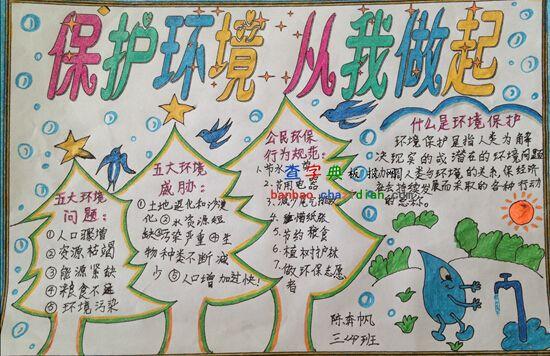 保护环境 从我做起
五大环境
问题：
①人口骤增
②资源枯竭
③能源紧缺
④粮食不延
⑤环境污染
五大环境
威胁：
①土地退化和沙漠
化②水资源短
缺③污染严重④生
物种类不断减
少⑤人口增加过快！
公民环保
行为规范：
1.节水
2.节用电器
3.减少尾气排放
4.珍惜纸张
5.节约粮食
6.植树护林
7.做环保志愿
者
什么是环境保护
环境保护是指人类为解
决现实的或潜在的环境问题
人类与环境的关系,保经济
社会持续发展而采取的各种行动
的总称。
查字典板报网
banbao.chazidian.com
陈奔帆
三(4)班